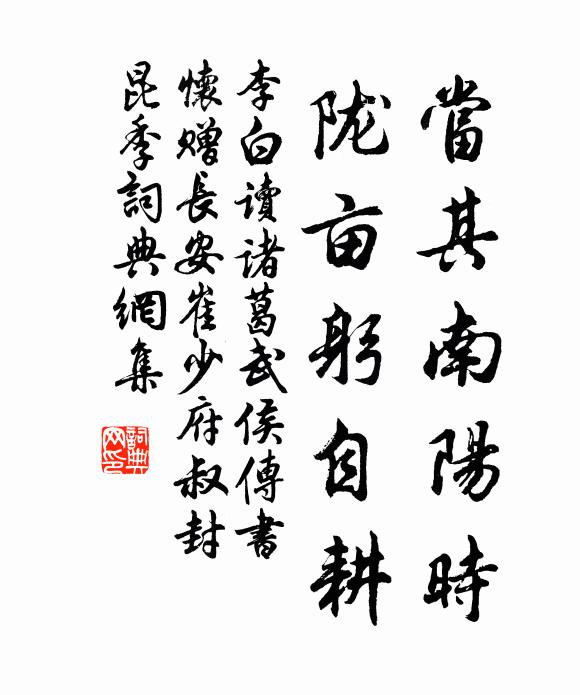 當其南陽時
陇亩躬自耕
李白讀诸葛武侯傳書
懷赠長安崔少府叔封
昆季詞典網集
詞典
网印